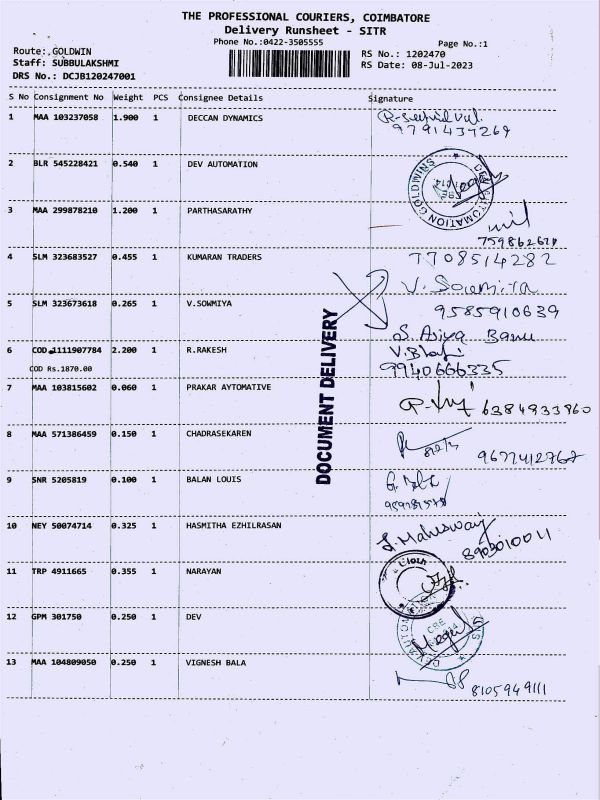 THE PROFESSIONAL COURIERS, COIMBATORE
Delivery Runsheet - SITR
Phone No.:0422-3505555
Page No.:1
Route:.GOLDWIN
RS No.: 1202470
Staff: SUBBULAKSHMI
RS Date: 08-Jul-2023
DRS No.: DCJB120247001
S No Consignment No Weight PCS Consignee Details Signature
1 MAA 103237058 1.900 1 DECCAN DYNAMICS
9791437269
2 BLR 545228421 0.540 1 DEV AUTOMATION
DEV AUTOMATION GOLDWINS
3 MAA 299878210 1.200 1 PARTHASARATHY
4 SLM 323683527 0.455 1 KUMARAN TRADERS 7708514282
V. Sowmiya
5 SLM 323673618 0.265 1 V.SOWMIYA 9585910639
S. Asiya Banu
6 COD 1111907784 2.200 1 R.RAKESH
COD Rs.1870.00 9940666335
7 MAA 103815602 0.060 1 PRAKAR AYTOMATIVE
6384933960
8 MAA 571386459 0.150 1 CHADRASEKAREN
9677412767
9 SNR 5205819 0.100 1 BALAN LOUIS
10 NEY 50074714 0.325 1 HASMITHA EZHILRASAN
8903010011
11 TRP 4911665 0.355 1 NARAYAN
12 GPM 301750 0.250 1 DEV
13 MAA 104809050 0.250 1 VIGNESH BALA
8105949111
DOCUMENT DELIVERY